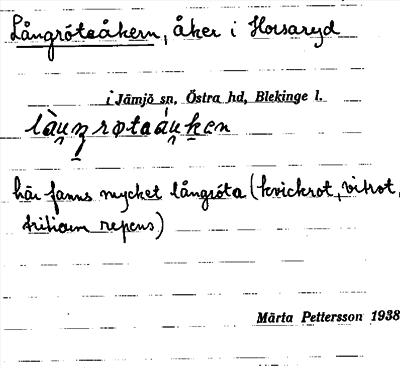 Långrötsåkern, åker i Horsaryd
i Jämjö sn, Östra hd, Blekinge l.
här fanns mycket långröta (kvickrot, vitrot,
triticum repens)
Märta Pettersson 1938